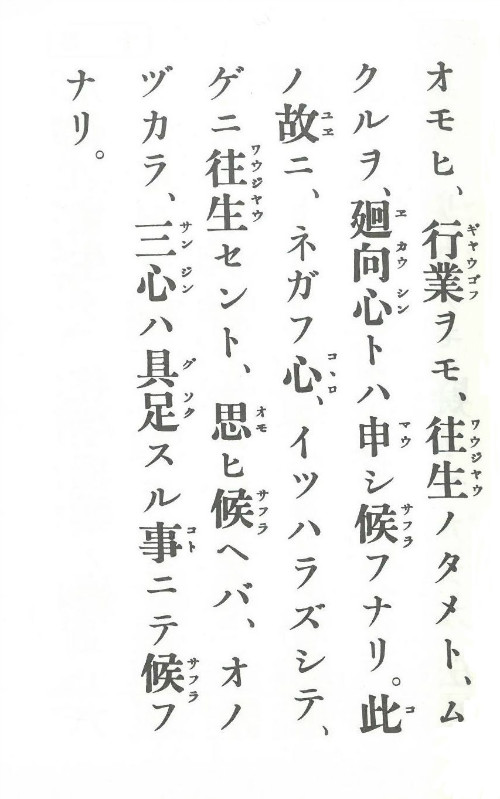 オモヒ、行業ヲモ、往生ノタメト、ム
クルヲ、廻向心トハ申シ候フナリ。此
ノ故ニ、ネガフ心、イツハラズシテ、
ゲニ往生セント、思ヒ候ヘバ、オノ
ヅカラ、三心ハ具足スル事ニテ候フ
ナリ。